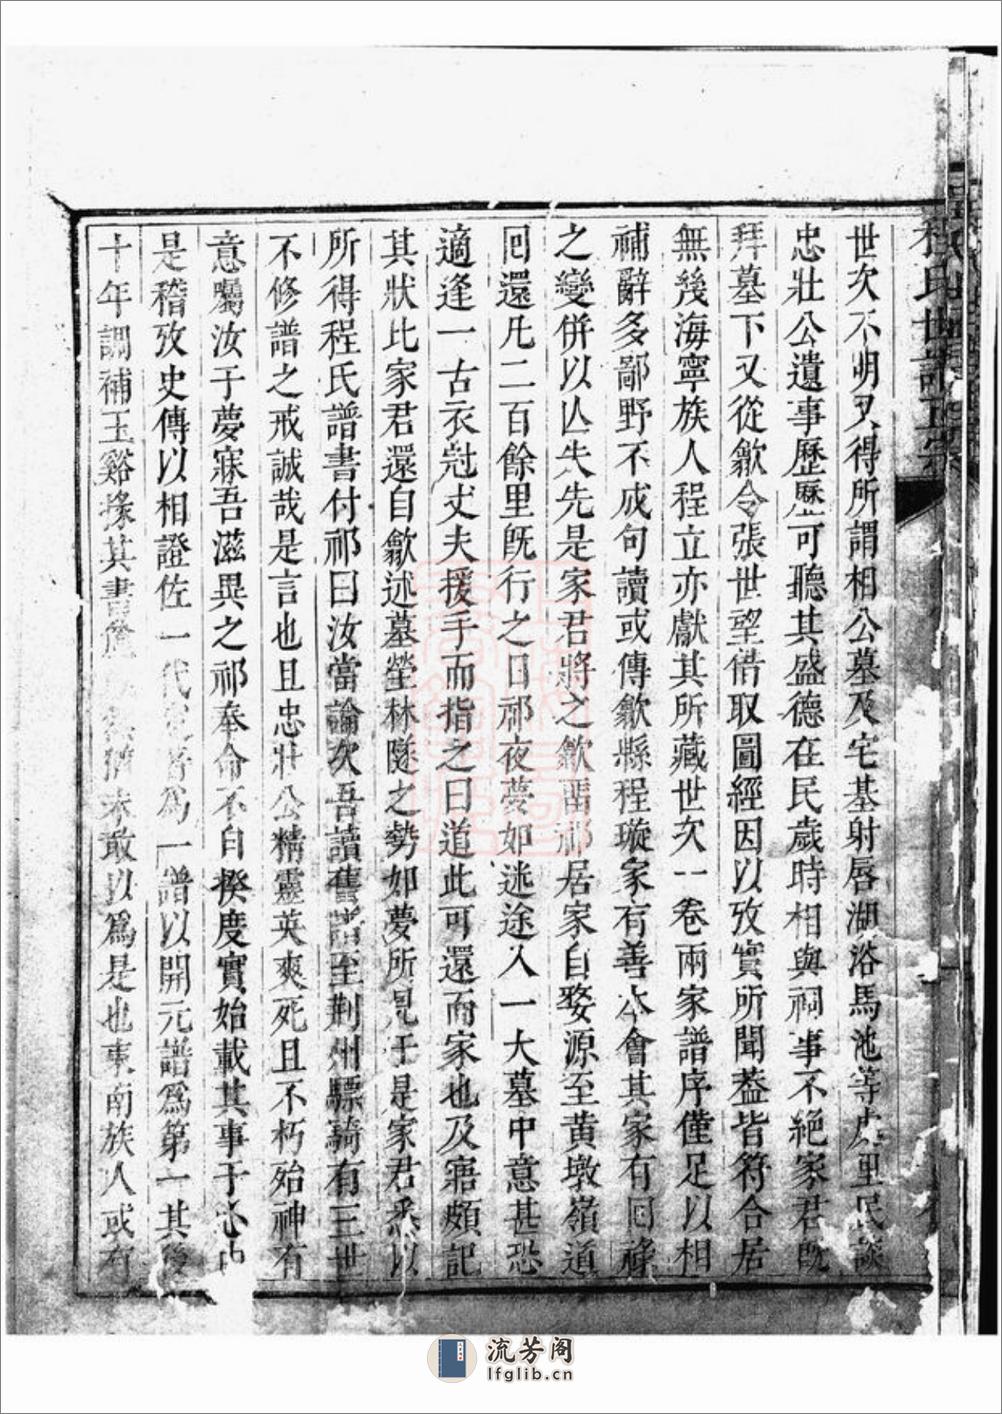 世次不明又得所謂相公墓及宅基射唇湖浴馬池等處里民談
忠壯公遺事歷歷可聽其盛德在民歲時相與祠事不絕家君旣
拜墓下又從歙令張世望借取圖經因以攷實所聞葢皆符合居
無幾海寧族人程立亦獻其所藏世次一卷兩家譜序僅足以相
補辭多鄙野不成句讀或傳歙縣程璇家有善本會其家有回祿
之變併以亾失先是家君將之歙畱祁居家自婺源至黃墩嶺道
回還凡二百餘里旣行之日祁夜夢如迷途入一大墓中意甚恐
適逢一古衣冠丈夫援手而指之曰道此可還而家也及寤頗記
其狀比家君還自歙述墓塋林隧之勢如夢所見于是家君悉以
所得程氏譜書付祁曰汝當論次吾讀舊譜至荆州驃騎有三世
不修譜之戒誠哉是言也且忠壯公精靈英爽死且不朽殆神有
意囑汝于夢寐吾滋異之祁奉命不自揆度實始載其事于
是稽攷史傳以相證佐一代爲一譜以開元譜爲第一其後
十年調補玉谿掾其書未敢以爲是也東南族人或有
程氏世譜正宗
流芳阁
lfglib.cn